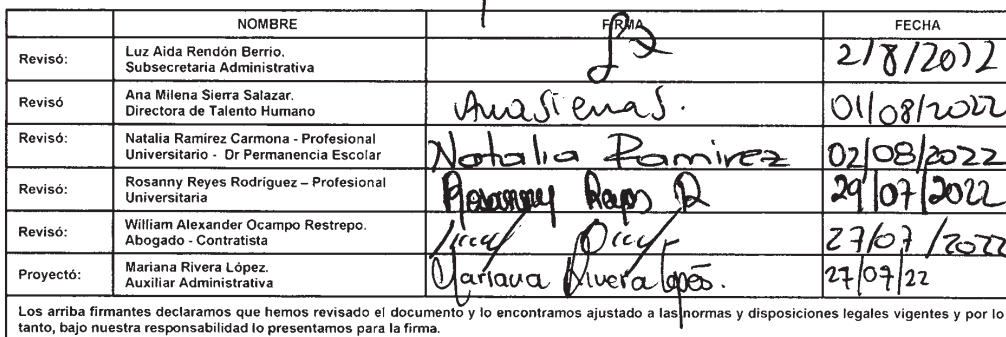 NOMBRE FIRMA FECHA
Revisó: Luz Aida Rendón Berrio.
Subsecretaria Administrativa
2/8/2022
Revisó Ana Milena Sierra Salazar.
Directora de Talento Humano
AnaSierraS. 01/08/2022
Revisó: Natalia Ramírez Carmona - Profesional
Universitario - Dr Permanencia Escolar
Natalia Ramirez 02/08/2022
Revisó: Rosanny Reyes Rodríguez – Profesional
Universitaria
Rosanny Reyes R 29/07/2022
Revisó: William Alexander Ocampo Restrepo.
Abogado - Contratista
27/07/2022
Proyectó: Mariana Rivera López.
Auxiliar Administrativa
Mariana Rivera López. 27/07/22
Los arriba firmantes declaramos que hemos revisado el documento y lo encontramos ajustado a las normas y disposiciones legales vigentes y por lo
tanto, bajo nuestra responsabilidad lo presentamos para la firma.